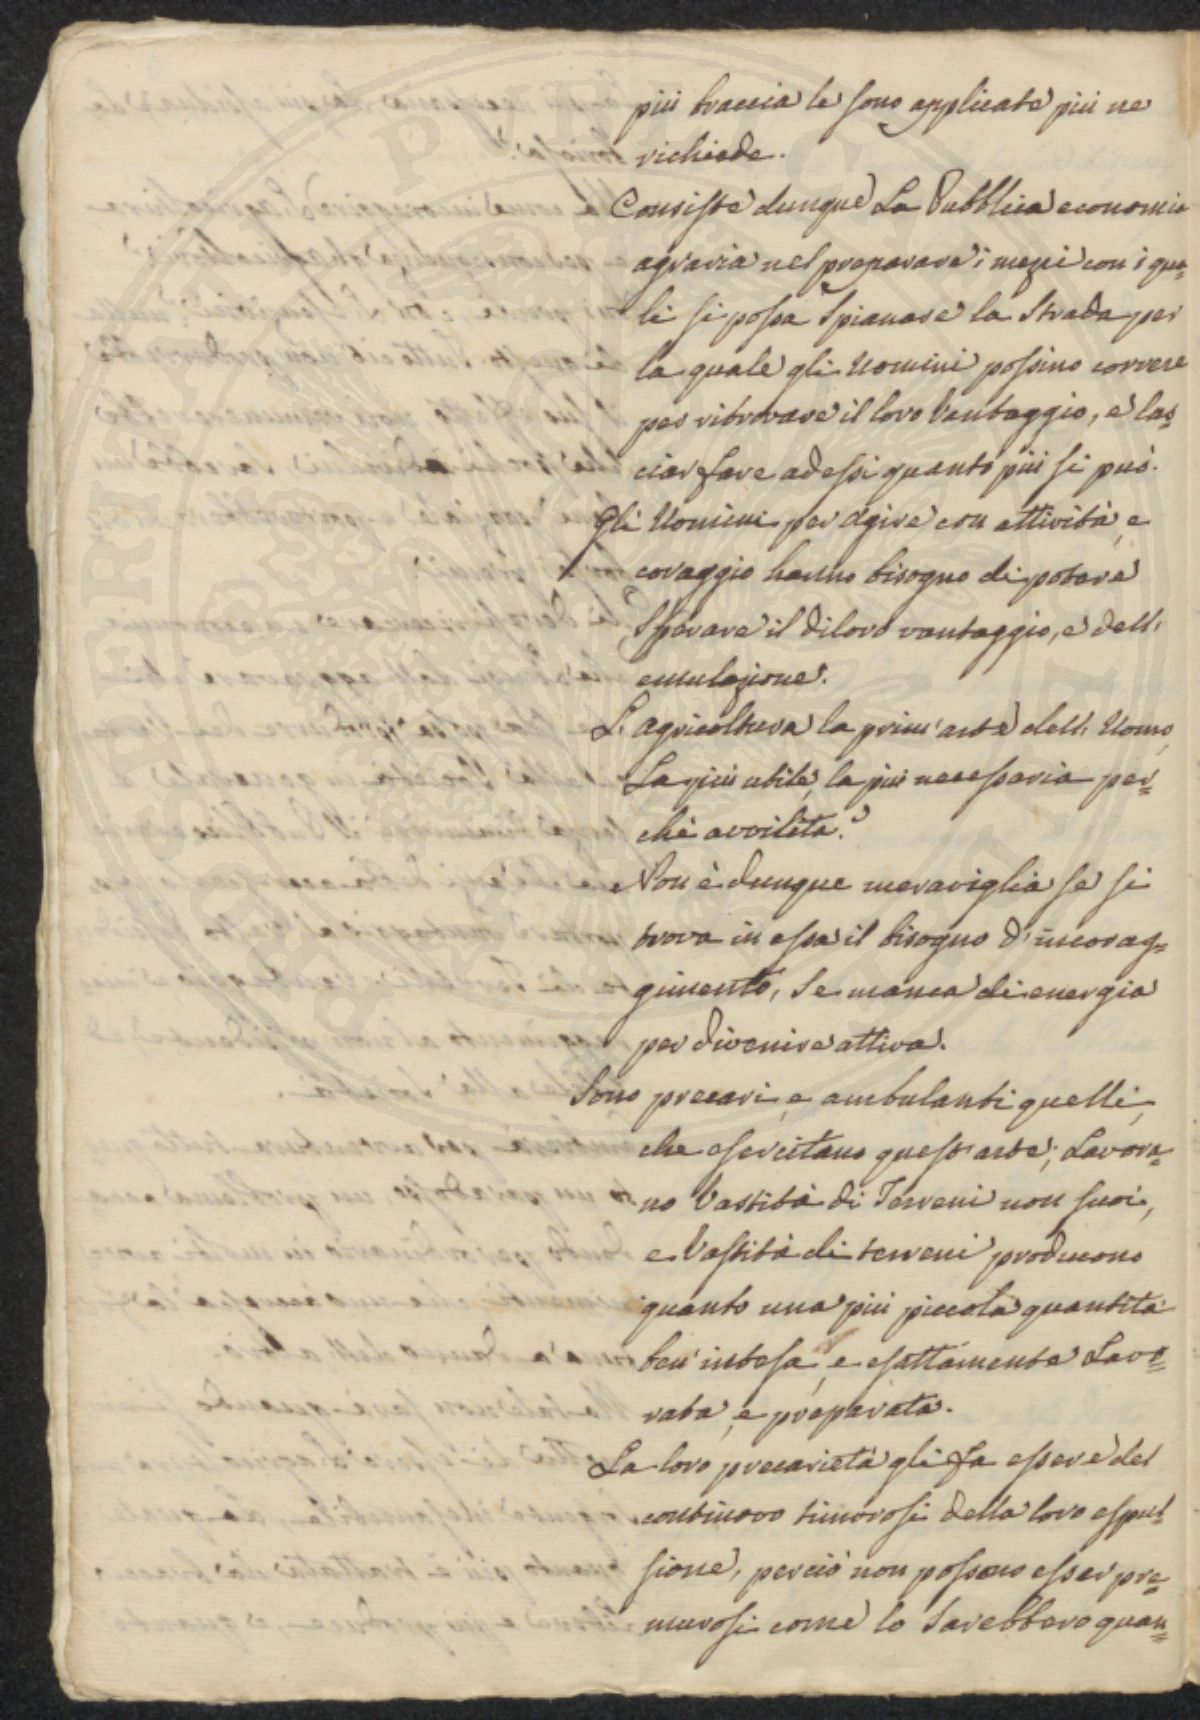 più braccia le sono applicate più ne
richiede.
Consiste dunque La Pubblica economia
agraria nel preparare i mezzi con i qua=
li si possa Spianare la Strada per
la quale gli Uomini possino correre
per ritrovare il loro Vantaggio, e las=
ciar fare ad essi quanto più si può.
Gli Uomini per agire con attività, e
coraggio hanno bisogno di potere
Sperare il di loro vantaggio, e dell'
emulazione.
L'agricoltura la prim'arte dell'Uomo,
La più utile, la più necessaria per=
chè avvilita?
Non è dunque meraviglia se si
trova in essa il bisogno d'incorag=
gimento, Se manca di energia
per divenire attiva.
Sono precari, e ambulanti quelli,
che esercitano quest'arte; Lavora=
no Vastità di Terreni non suoi,
e Vastità di terreni producono
quanto una più piccola quantità
ben intesa, e esattamente Lavo=
rata, e preparata.
La loro precarietà gli fa essere del
continovo timorosi della loro espul=
sione, perciò non possono esser pre=
murosi come lo Sarebbero quan=